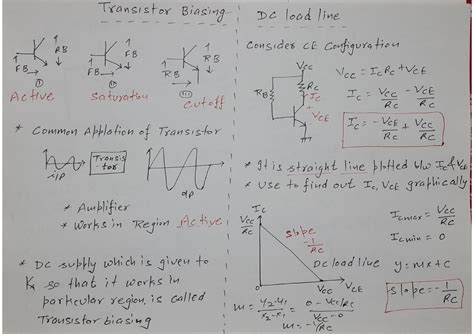 Transistor Biasing
RB
FB
RB
FB
FB
RB
CB
Active
Saturation
Cutoff
* Common Appliation of Transistor
i/p
Transis
tor
o/p
* Amplifier
* Works in Region Active
* DC supply which is given to
so that it works in
particular region, is called
Transistor biasing
DC load line
Consider CE Configuration
VCC
RC
RB
IC
VCE
VCC = ICRC + VCE
IC = VCC/RC - VCE/RC
IC = -VCE/RC + VCC/RC
* It is straight line plotted b/w IC & VCE
* use to find out IC, VCE graphically
IC
VCC/RC
slope -1/RC
DC load line
VCC
VCE
ICmax = VCC/RC
ICmin = 0
y = mx + C
slope = -1/RC
m = y2-y1/x2-x1 = 0 - VCC/RC/VCC-0
m = -1/RC